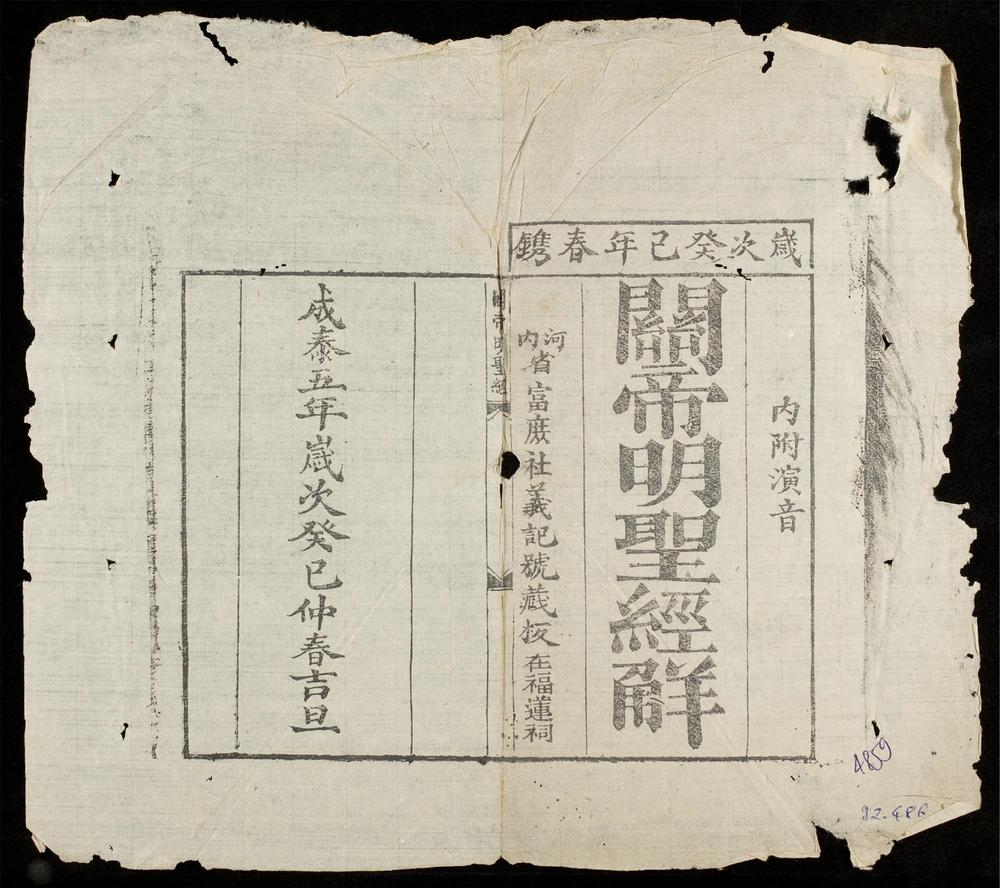 歲次癸巳年春鐫
內附演音
關帝明聖經觧
河內省富庶社義記號藏板在福蓮祠
關帝明聖經
成泰五年歲次癸巳仲春吉旦
4859
92.486